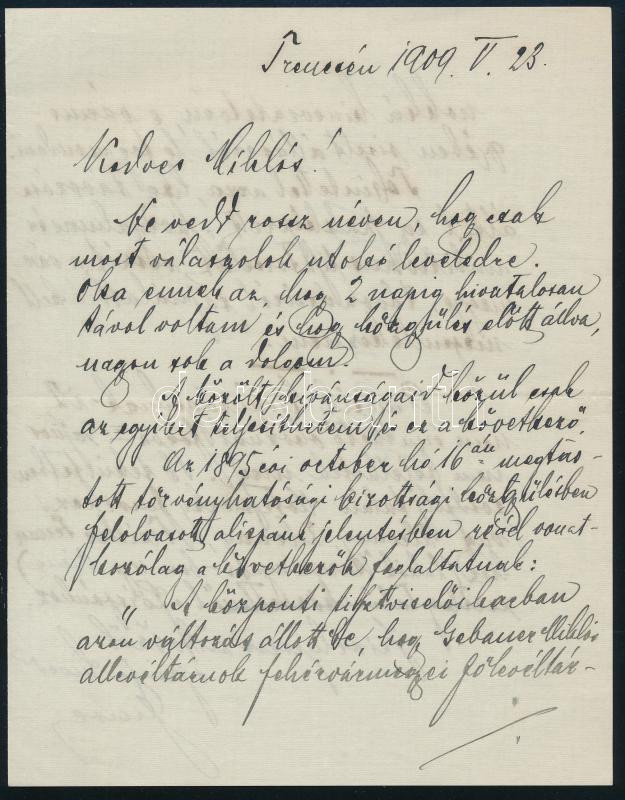 Trencsén 1909. V. 23.
Kedves Miklós!
Ne vedd rossz néven, hogy csak
most válaszolok utolsó leveledre.
Oka ennek az, hogy 2 napig hivatalosan
távol voltam és hogy közgyűlés előtt állva,
nagyon sok a dolgom.
A közölt kívánságaid közül csak
az egyiket teljesíthetem és ez a következő.
Az 1895 évi october hó 16 án megtar-
tott törvényhatósági bizottsági közgyűlésben
felolvasott alispáni jelentésben reád vonat-
kozólag a következők foglaltatnak:
„A központi tisztviselői karban
azon változás állott be, hogy Gebauer Miklós
allevéltárnok fehérvármegyei főlevéltár-
darabanth